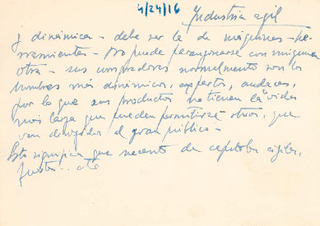 4/24/16
Industria agil
y dinámica - debe ser la de máquinas-he-
rramientas - No puede parangonarse con ninguna
otra - sus compradores normalmente son los
hombres más dinámicos, expertos, audaces,
por lo que sus productos no tienen la vida
más larga que pueden permitirse otros, que
van dirigidos al gran público -
Esto significa que necesita de capitales ágiles,
fuertes .. etc